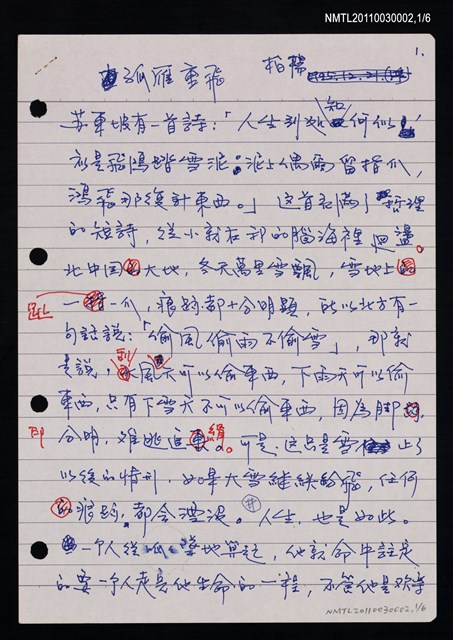 NMTL20110030002,1/6
1.
孤雁東飛 柏楊
95.12.21.
蘇東坡有一首詩:「人生到處知何似
恰是飛鴻踏雪泥:泥上偶爾留指爪,
鴻飛那復計東西。」這首充滿了哲理
的短詩,從小就在我的腦海裡迴盪。
北中國大地,冬天萬里雪飄,雪地上
一趾一爪,痕跡都十分明顯,所以北方有一
句話說:「偷風偷雨不偷雪」,那就
是說,颳風天可以偷東西,下雨天可以偷
東西,只有下雪天不可以偷東西,因為腳印
分明,難逃追緝。可是,這只是雪停止了
以後的情形,如果大雪繼續紛飛,任何
痕跡,都會湮沒。人生,也是如此。
一個人從墮地算起,他就命中註定
的要一個人走完他生命的一程,不管他是歡樂
NMTL20110030002,1/6